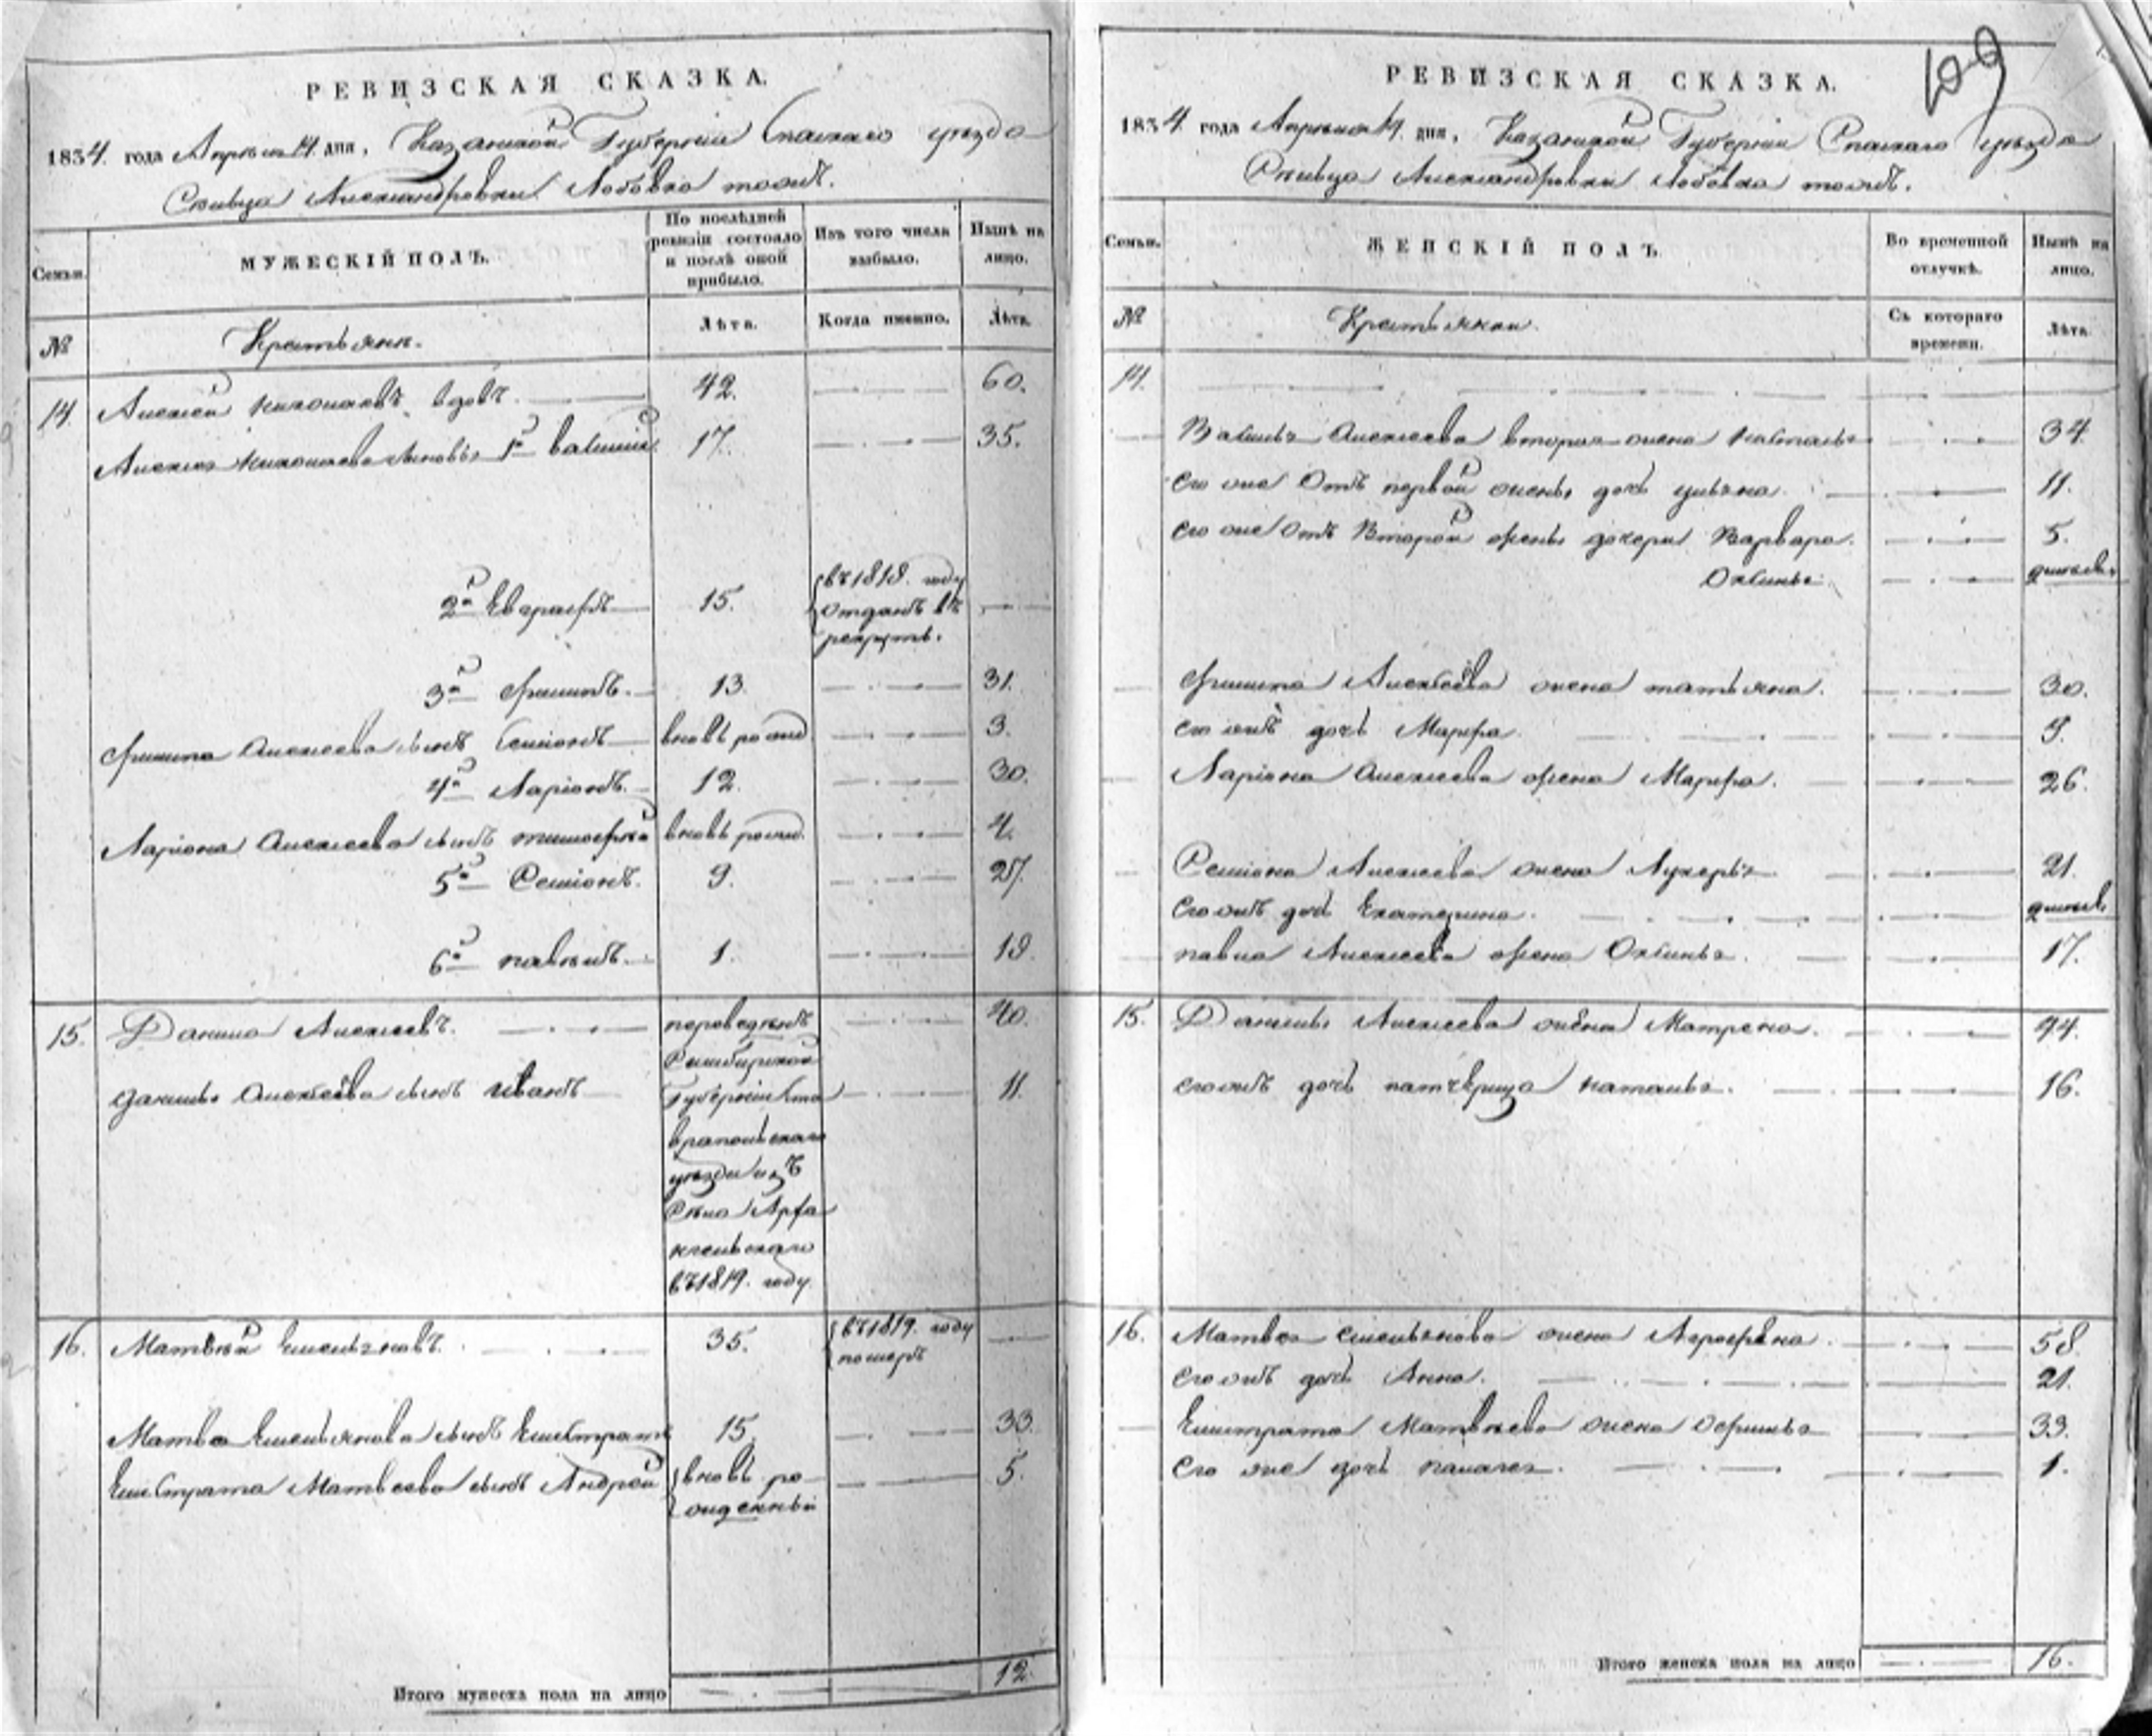 РЕВИЗСКАЯ СКАЗКА.
1834. года Апрѣля 14. дня, Казанской Губерніи Спаскаго уѣзда
Сельца Александровки Лобовка тожъ.
Семьи.
МУЖЕСКІЙ ПОЛЪ.
По послѣдней ревизіи состояло и послѣ оной прибыло.
Изъ того числа выбыло.
Нынѣ на лицо.
№
Крестьяне.
Лѣта.
Когда именно.
Лѣта.
14. Алексей Николаевъ вдовъ. 42. 60.
Алексея Николаева сыновья 1й Василий 17. 35.
2й Евграфъ 15. въ 1818. году отданъ въ рекруты.
3й Филипъ. 13. 31.
Филипа Алексеева сынъ Семіонъ вновь рожд. 3.
4й Ларіонъ. 12. 30.
Ларіона Алексеева сынъ тимофей вновь рожд. 4.
5й Семіонъ. 9. 27.
6й павелъ. 1. 19.
15. Данила Алексеевъ. переведенъ 40.
Симбирской
Данилы Алексеева сынъ Иванъ Губерніи Ста 11.
вропольскаго
уезда изъ
Села Арха
нгельскаго
въ 1819. году.
16. Матвей Емельяновъ. 35. въ 1819. году
померъ
Матвея Емельянова сынъ Елистратъ 15. 33.
Елистрата Матвеева сынъ Андрей вновь ро 5.
жденный
Итого мужеска пола на лицо 12.
РЕВИЗСКАЯ СКАЗКА. 109
1834. года Апрѣля 14. дня, Казанской Губерніи Спаскаго уѣзда
Сельца Александровки Лобовка тожъ.
Семьи.
ЖЕНСКІЙ ПОЛЪ.
Во временной отлучкѣ.
Нынѣ на лицо.
№
Крестьянки.
Съ котораго времени.
Лѣта.
14.
Василья Алексеева вторая жена Наталья 34.
Его же Отъ первой жены дочь ульяна. 11.
Его же Отъ Второй жены дочери Варвара. 5.
Оксинья
Филипа Алексеева жена татьяна. 30.
Его жъ дочь Марфа. 9.
Ларіона Алексеева жена Марфа. 26.
Семіона Алексеева жена Лукерья 21.
Его жъ дочь Екатерина.
павла Алексеева жена Оксинья. 17.
15. Данилы Алексеева жена Матрена. 44.
Его жъ дочь патчерица Наталья. 16.
16. Матвея Емельянова жена Агрофена. 58.
Его жъ дочь Анна. 21.
Елистрата Матвеева жена Офимья 33.
Его же дочь палагея. 1.
Итого женска пола на лицо 16.